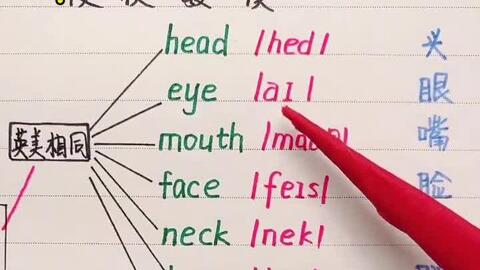 head /hed/ 头
eye /aɪ/ 眼
英美相同
mouth 嘴
face /feɪs/ 脸
neck /nek/